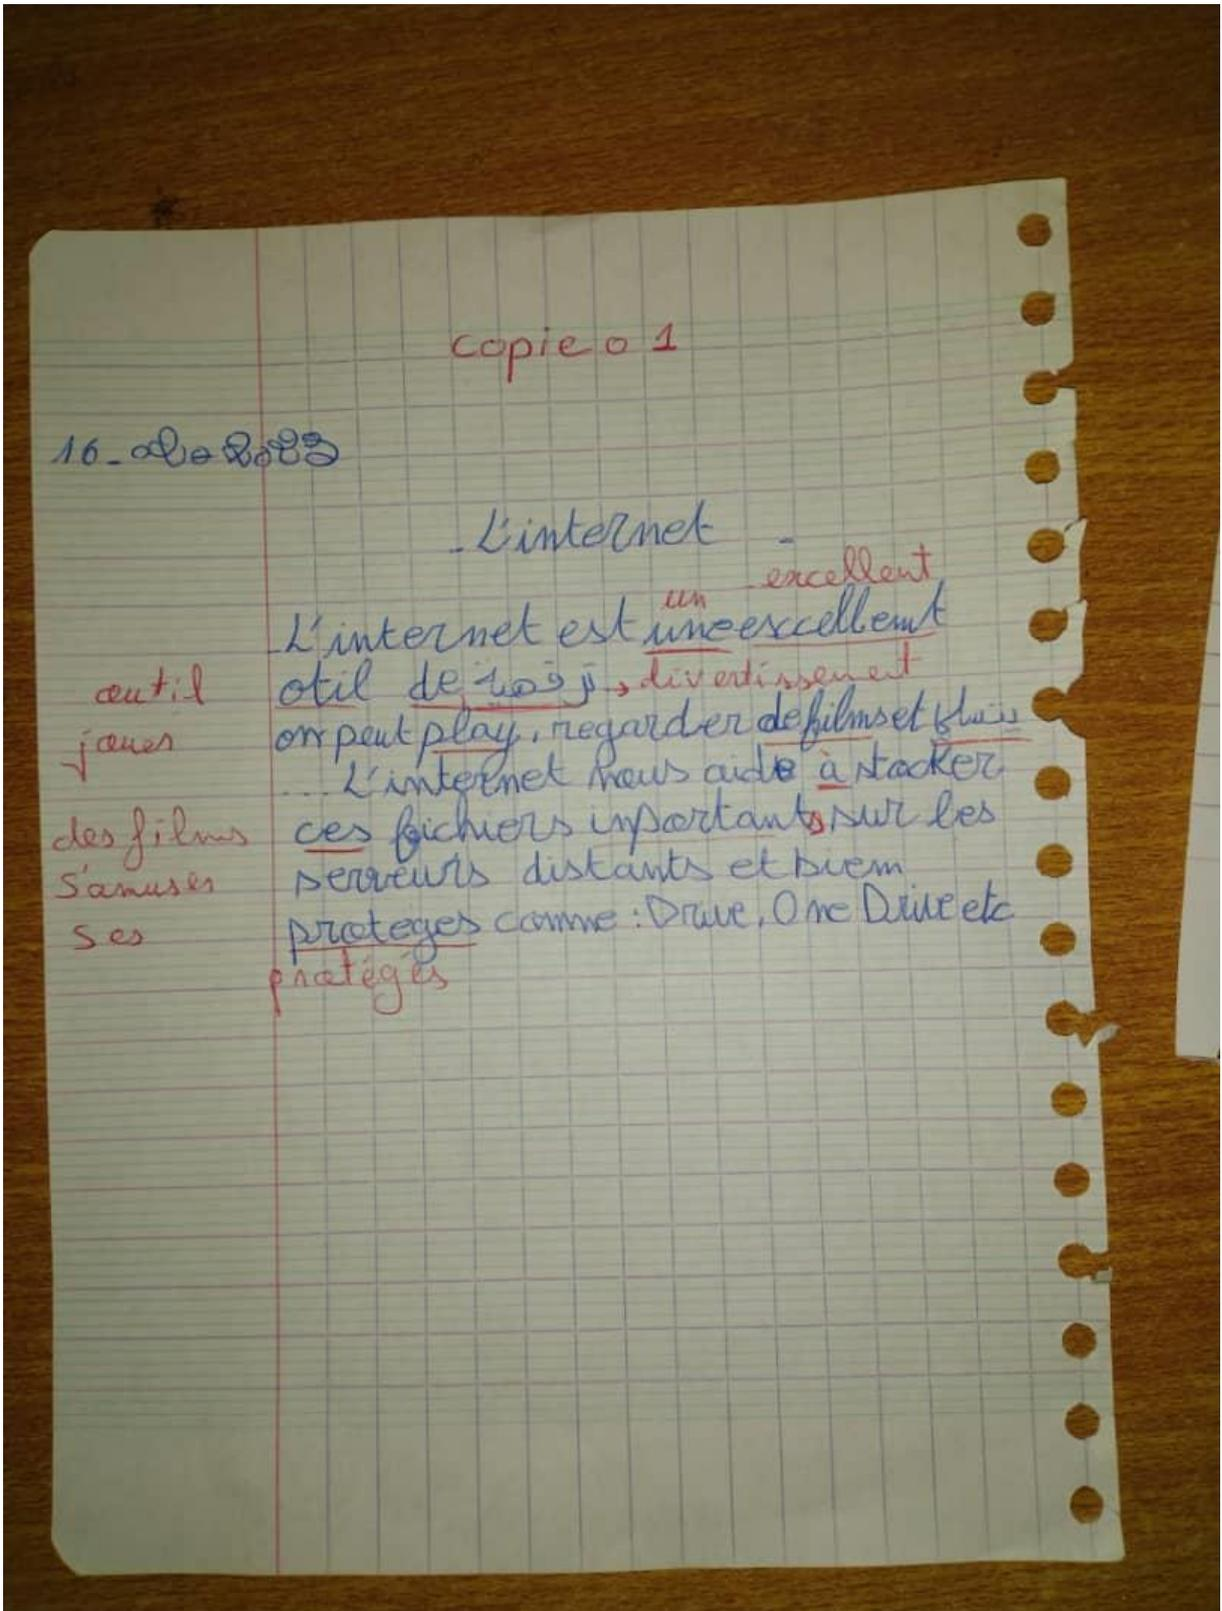 copie 01
16-02-2023
- L'internet -
un excellent
L'internet est une excellemt
outil otil de ترفيه → divertissement
jouer on peut play, regarder de films et نشاط
L'internet nous aide à stocker
des films ces fichiers inportants sur les
s'amuser serveurs distants et biem
ses proteges comme : Drive, One Drive etc
protégés